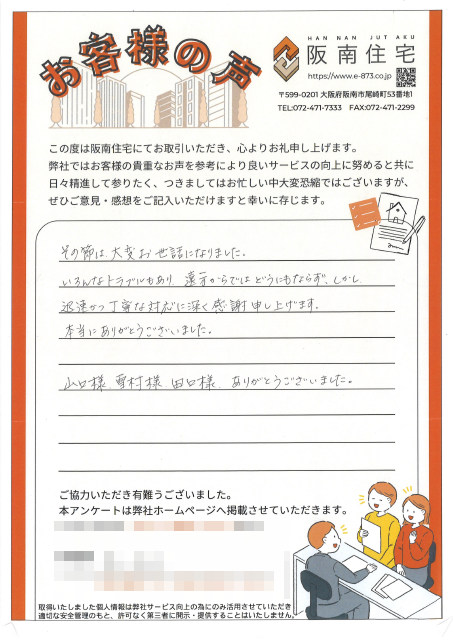 お客様の声
HAN NAN JUTAKU
阪南住宅
https://www.e-873.co.jp
〒599-0201 大阪府阪南市尾崎町53番地1
TEL:072-471-7333 FAX:072-471-2299
この度は阪南住宅にてお取引いただき、心よりお礼申し上げます。
弊社ではお客様の貴重なお声を参考により良いサービスの向上に努めると共に
日々精進して参りたく、つきましてはお忙しい中大変恐縮ではございますが、
ぜひご意見・感想をご記入いただけますと幸いに存じます。
その節は、大変お世話になりました。
いろんなトラブルもあり、遠方からではどうにもならず、しかし
迅速かつ丁寧な対応に深く感謝申し上げます。
本当にありがとうございました。
山口様、雪村様、田口様、ありがとうございました。
ご協力いただき有難うございました。
本アンケートは弊社ホームページへ掲載させていただきます。
取得いたしました個人情報は弊社サービス向上の為にのみ活用させていただき
適切な安全管理のもと、許可なく第三者に開示・提供することはいたしません。